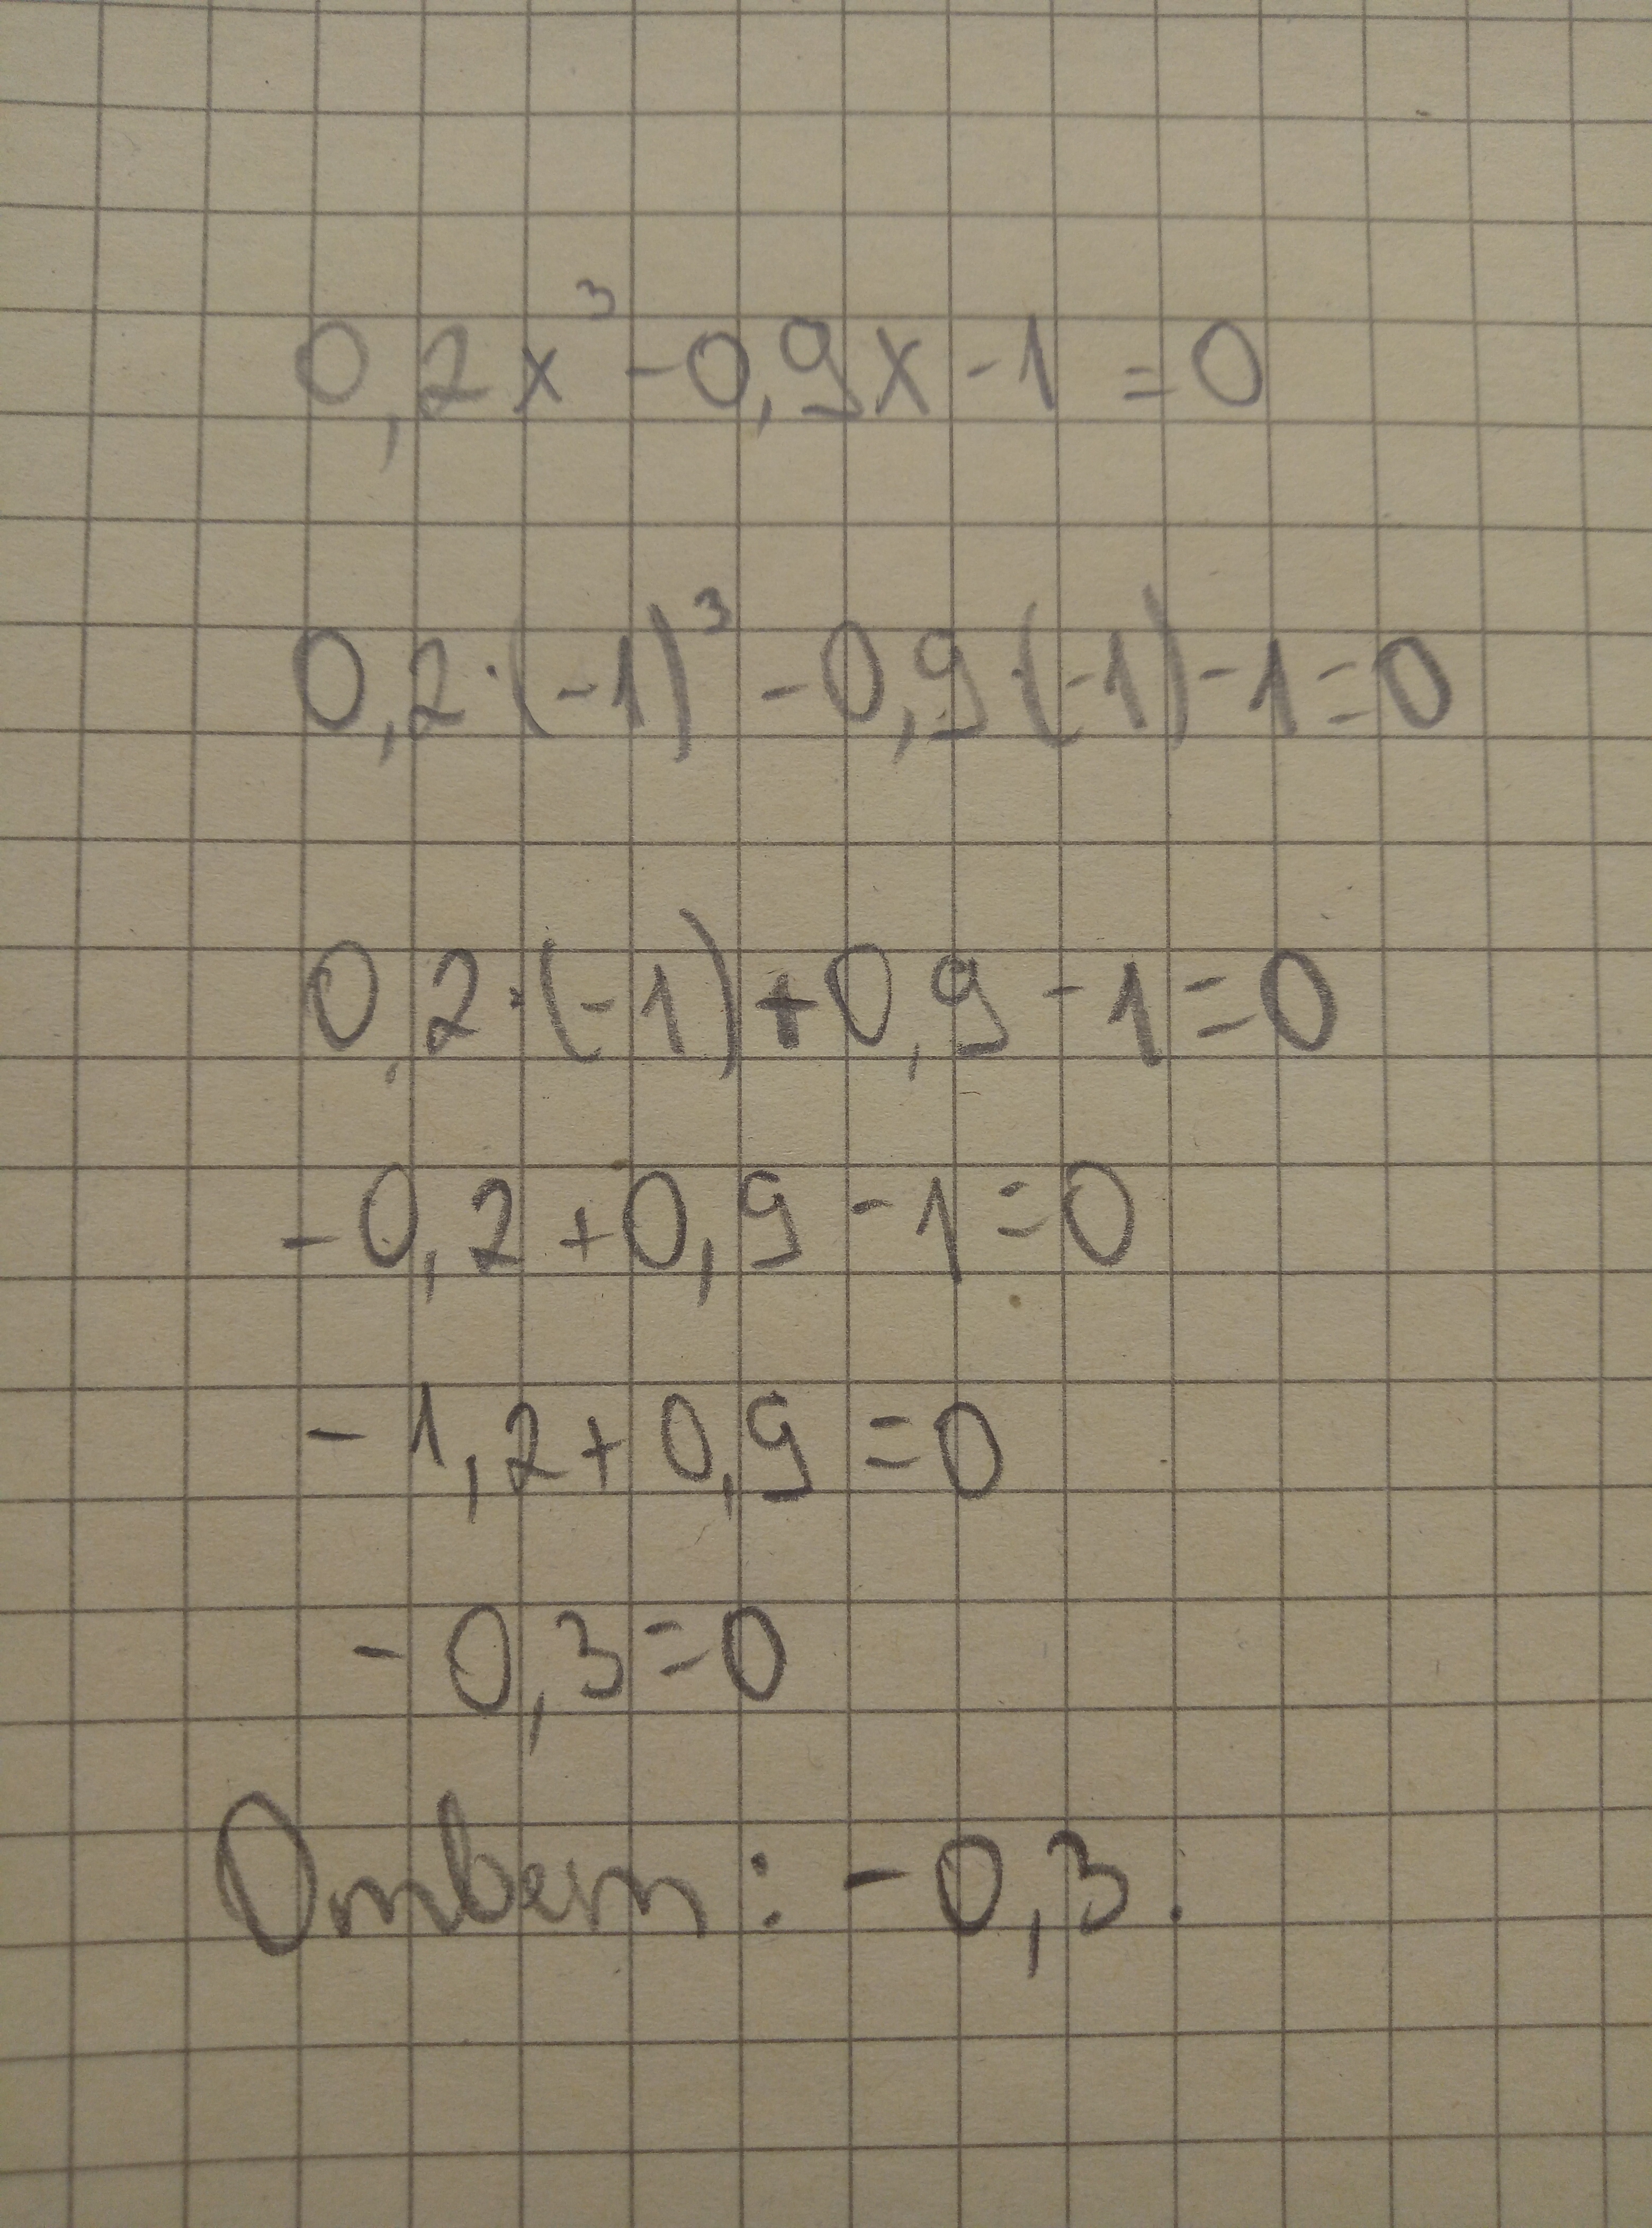 0,2x³-0,9x-1=0
0,2·(-1)³-0,9·(-1)-1=0
0,2·(-1)+0,9-1=0
-0,2+0,9-1=0
-1,2+0,9=0
-0,3=0
Ответ: -0,3.